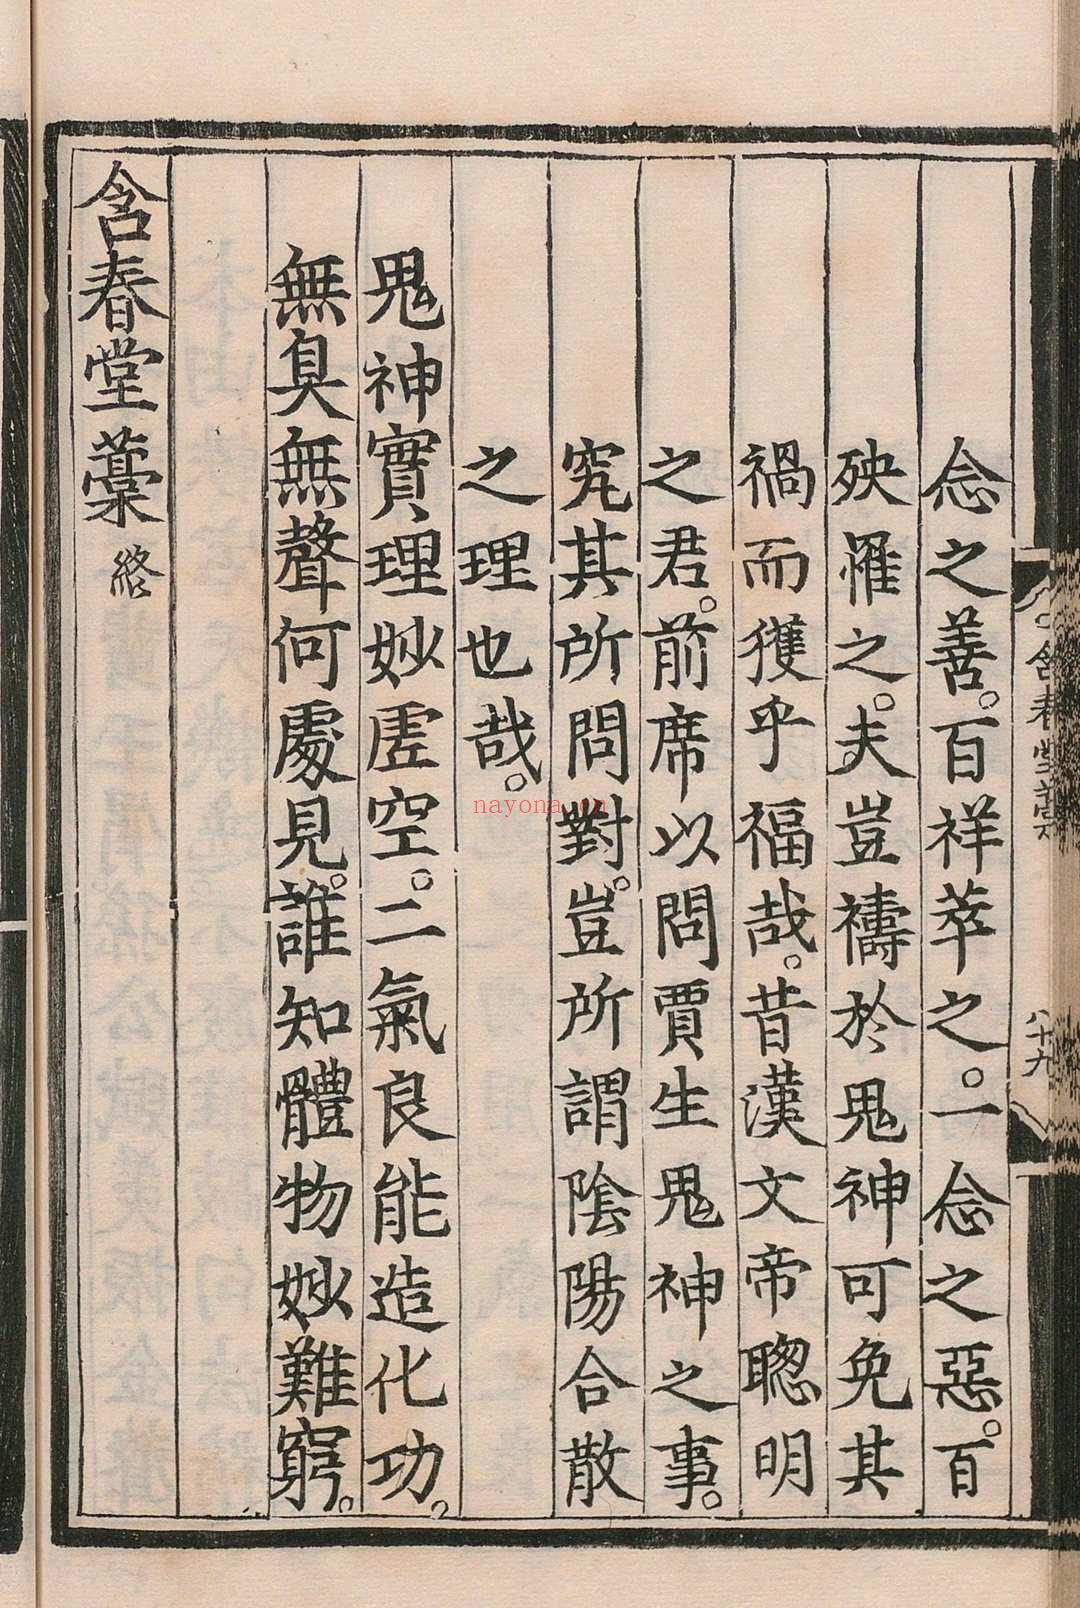 念之善。百祥萃之。一念之惡。百
殃罹之。夫豈禱於鬼神可免其
禍而獲乎福哉。昔漢文帝聰明
之君。前席以問賈生鬼神之事。
究其所問對。豈所謂陰陽合散
之理也哉。
鬼神實理妙虛空。二氣良能造化功。
無臭無聲何處見。誰知體物妙難窮。
含春堂藁終
含春堂藁
八十九
nayona.cn